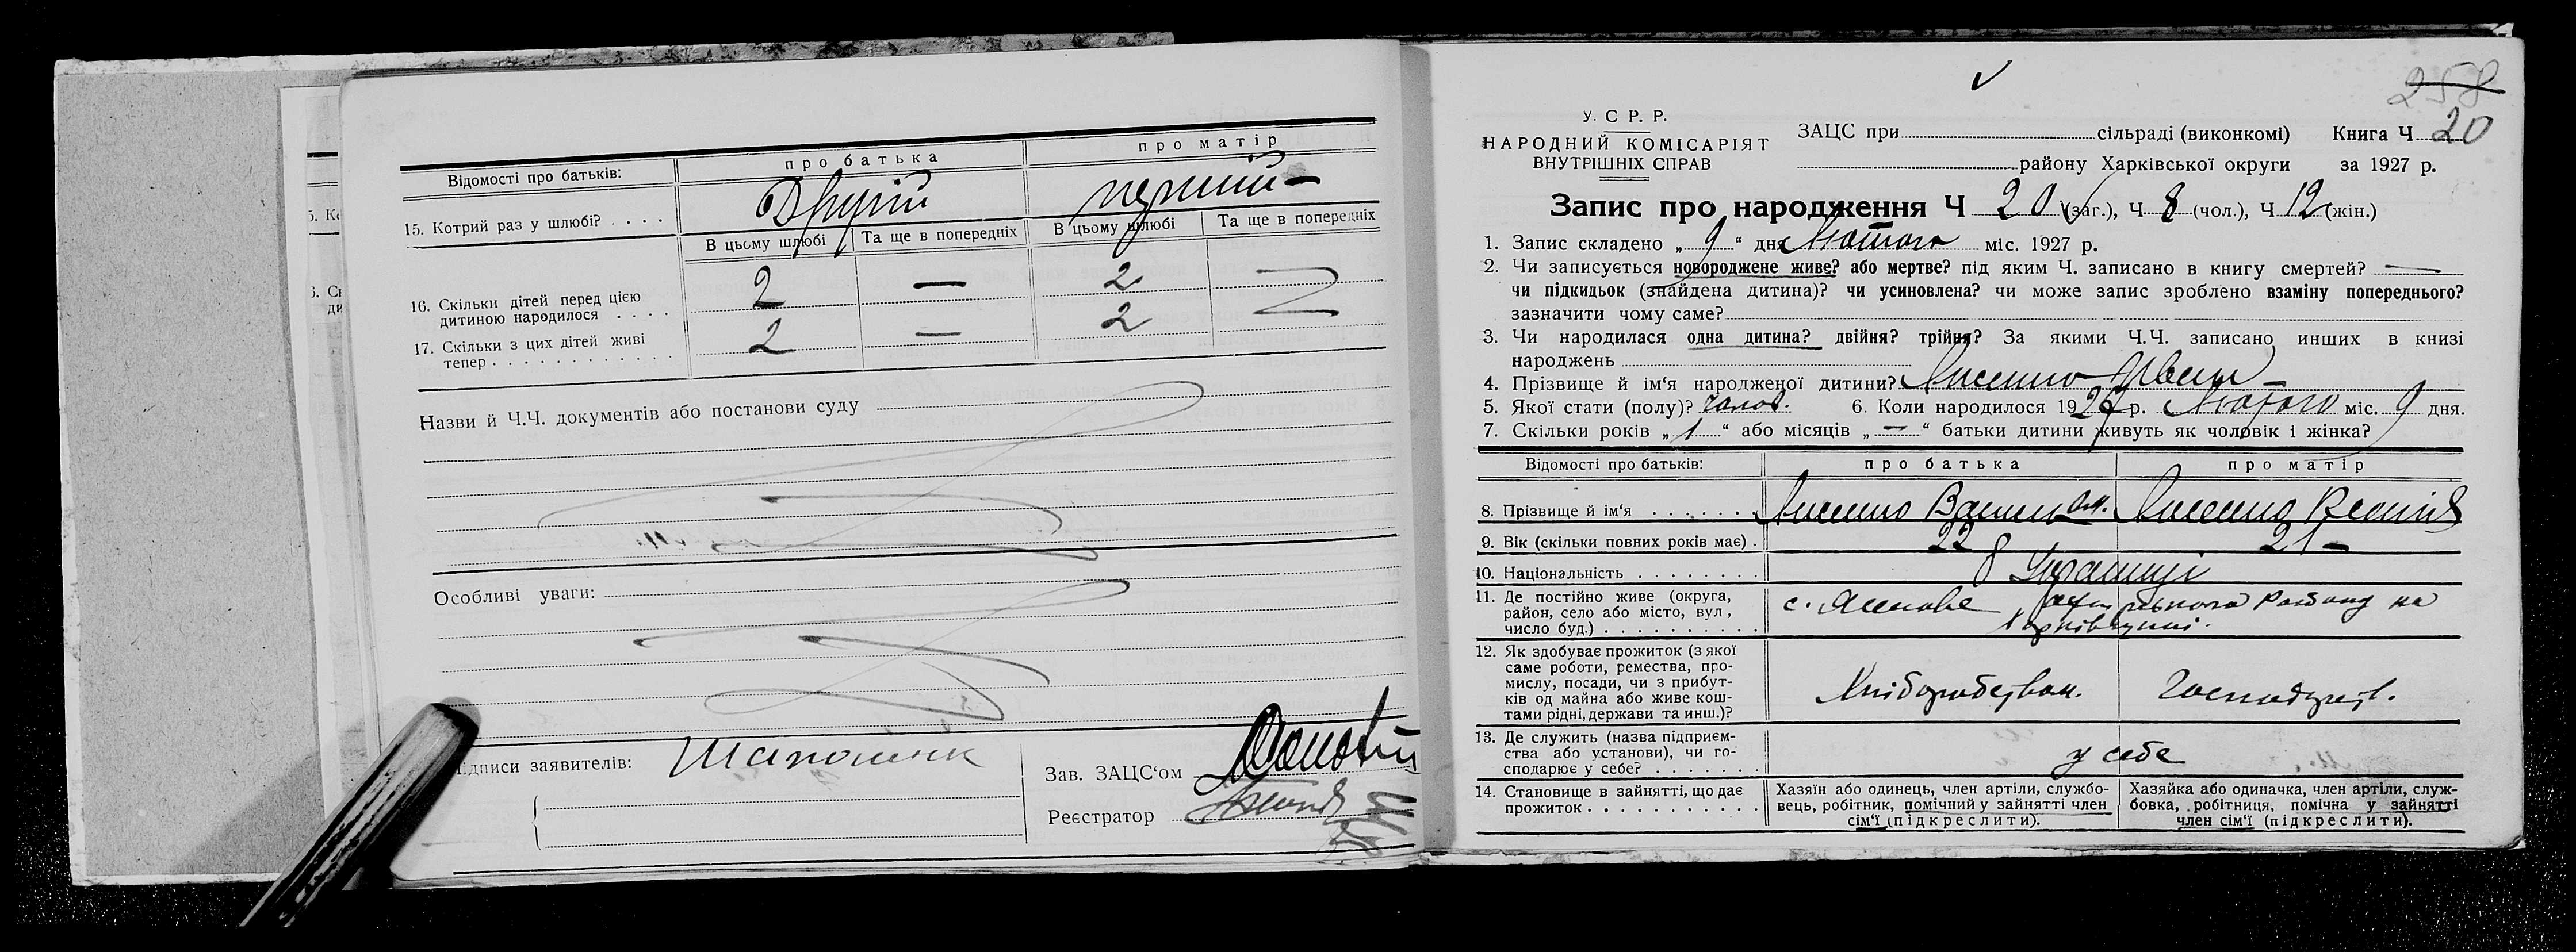 Відомості про батьків:
про батька
про матір
15. Котрий раз у шлюбі? . . . .
Другій
першій —
В цьому шлюбі
Та ще в попередніх
В цьому шлюбі
Та ще в попередніх
16. Скільки дітей перед цією
дитиною народилося . . . .
2 — 2 —
17. Скільки з цих дітей живі
тепер . . . . . . . . . . . .
2 — 2 —
Назви й Ч.Ч. документів або постанови суду
Особливі уваги:
дписи заявителів:
Зав. ЗАЦС‘ом
Реєстратор
258
У. С Р. Р.
НАРОДНИЙ КОМІСАРІЯТ
ВНУТРІШНІХ СПРАВ
ЗАЦС при сільраді (виконкомі) Книга Ч 20
району Харківської округи за 1927 р.
Запис про народження Ч 20 (заг.), Ч 8 (чол.), Ч 12 (жін.)
1. Запис складено „ 9 “ дня Лютого міс. 1927 р.
2. Чи записується новороджене живе? або мертве? під яким Ч. записано в книгу смертей? —
чи підкидьок (знайдена дитина)? чи усиновлена? чи може запис зроблено взаміну попереднього?
зазначити чому саме?
3. Чи народилася одна дитина? двійня? трійня? За якими Ч.Ч. записано инших в книзі
народжень
4. Прізвище й ім‘я народженої дитини? Лисенко Иван —
5. Якої стати (полу)? чолов. 6. Коли народилося 1927 р. Лютого міс. 9 дня.
7. Скільки років „ 1 “ або місяців „ — “ батьки дитини живуть як чоловік і жінка?
Відомості про батьків:
про батька
про матір
8. Прізвище й ім‘я . . . . . . .
Лисенко
Лисенко
9. Вік (скільки повних років має) .
22
21 —
10. Національність . . . . . . . .
Українці
11. Де постійно живе (округа,
район, село або місто, вул,
число буд.) . . . . . . . . . .
с.
району на
Харківщині.
12. Як здобуває прожиток (з якої
саме роботи, ремества, про-
мислу, посади, чи з прибут-
ків од майна або живе кош-
тами рідні, держави та инш.)?
Хліборобством.
Господарст.
13. Де служить (назва підприєм-
ства або установи), чи го-
сподарює у себе? . . . . . . .
у себе
14. Становище в зайнятті, що дає
прожиток . . . . . . . . . . .
Хазяїн або одинець, член артіли, службо-
вець, робітник, помічний у зайнятті член
сім‘ї (підкреслити).
Хазяйка або одиначка, член артіли, служ-
бовка, робітниця, помічна у зайнятті
член сім‘ї (підкреслити).